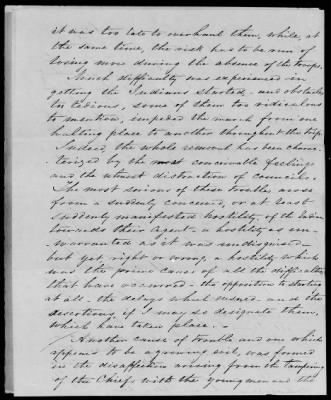 it was too late to overhaul them, while, at
the same time, the risk has to be run of
losing more during the absence of the troops.
Much difficulty was experienced in
getting the Indians started, and obstacles
too tedious, some of them too ridiculous
to mention, impeded the march from one
halting place to another throughout the trip.
Indeed, the whole removal has been charac-
terized by the most conceivable feelings
and the utmost distraction of councils.
The most serious of these troubles arose
from a suddenly conceived, or at least
suddenly manifested hostility, of the Indian
towards their Agent - a hostility as un-
warranted as it was undisguised -
but yet, right or wrong, a hostility which
was the prime cause of all the difficulties
that have occurred - the opposition to starting
at all - the delays which ensued - and the
desertions, if I may so designate them,
which have taken place.
Another cause of trouble and one which
appears to be a growing evil, was formed
in the disaffection arising from the tampering
of the Chiefs with the young men and the